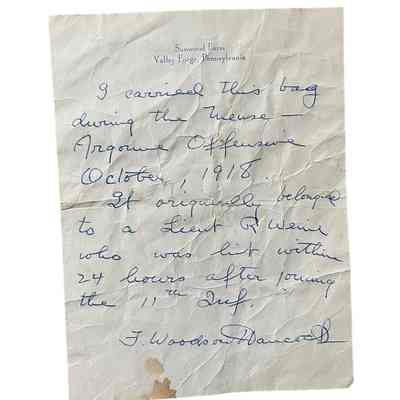 Sunnyside Farm
Valley Forge, Pennsylvania
I carried this bag
during the Meuse —
Argonne Offensive
October, 1918.
It originally belonged
to a Lieut R Weine
who was hit within
24 hours after joining
the 11th Inf.
F. Woodson Hancock